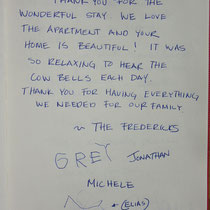 THANK YOU FOR THE
WONDERFUL STAY. WE LOVE
THE APARTMENT AND YOUR
HOME IS BEAUTIFUL! IT WAS
SO RELAXING TO HEAR THE
COW BELLS EACH DAY.
THANK YOU FOR HAVING EVERYTHING
WE NEEDED FOR OUR FAMILY.
~ THE FREDERICKS
GREY JONATHAN
MICHELE
(ELIAS)